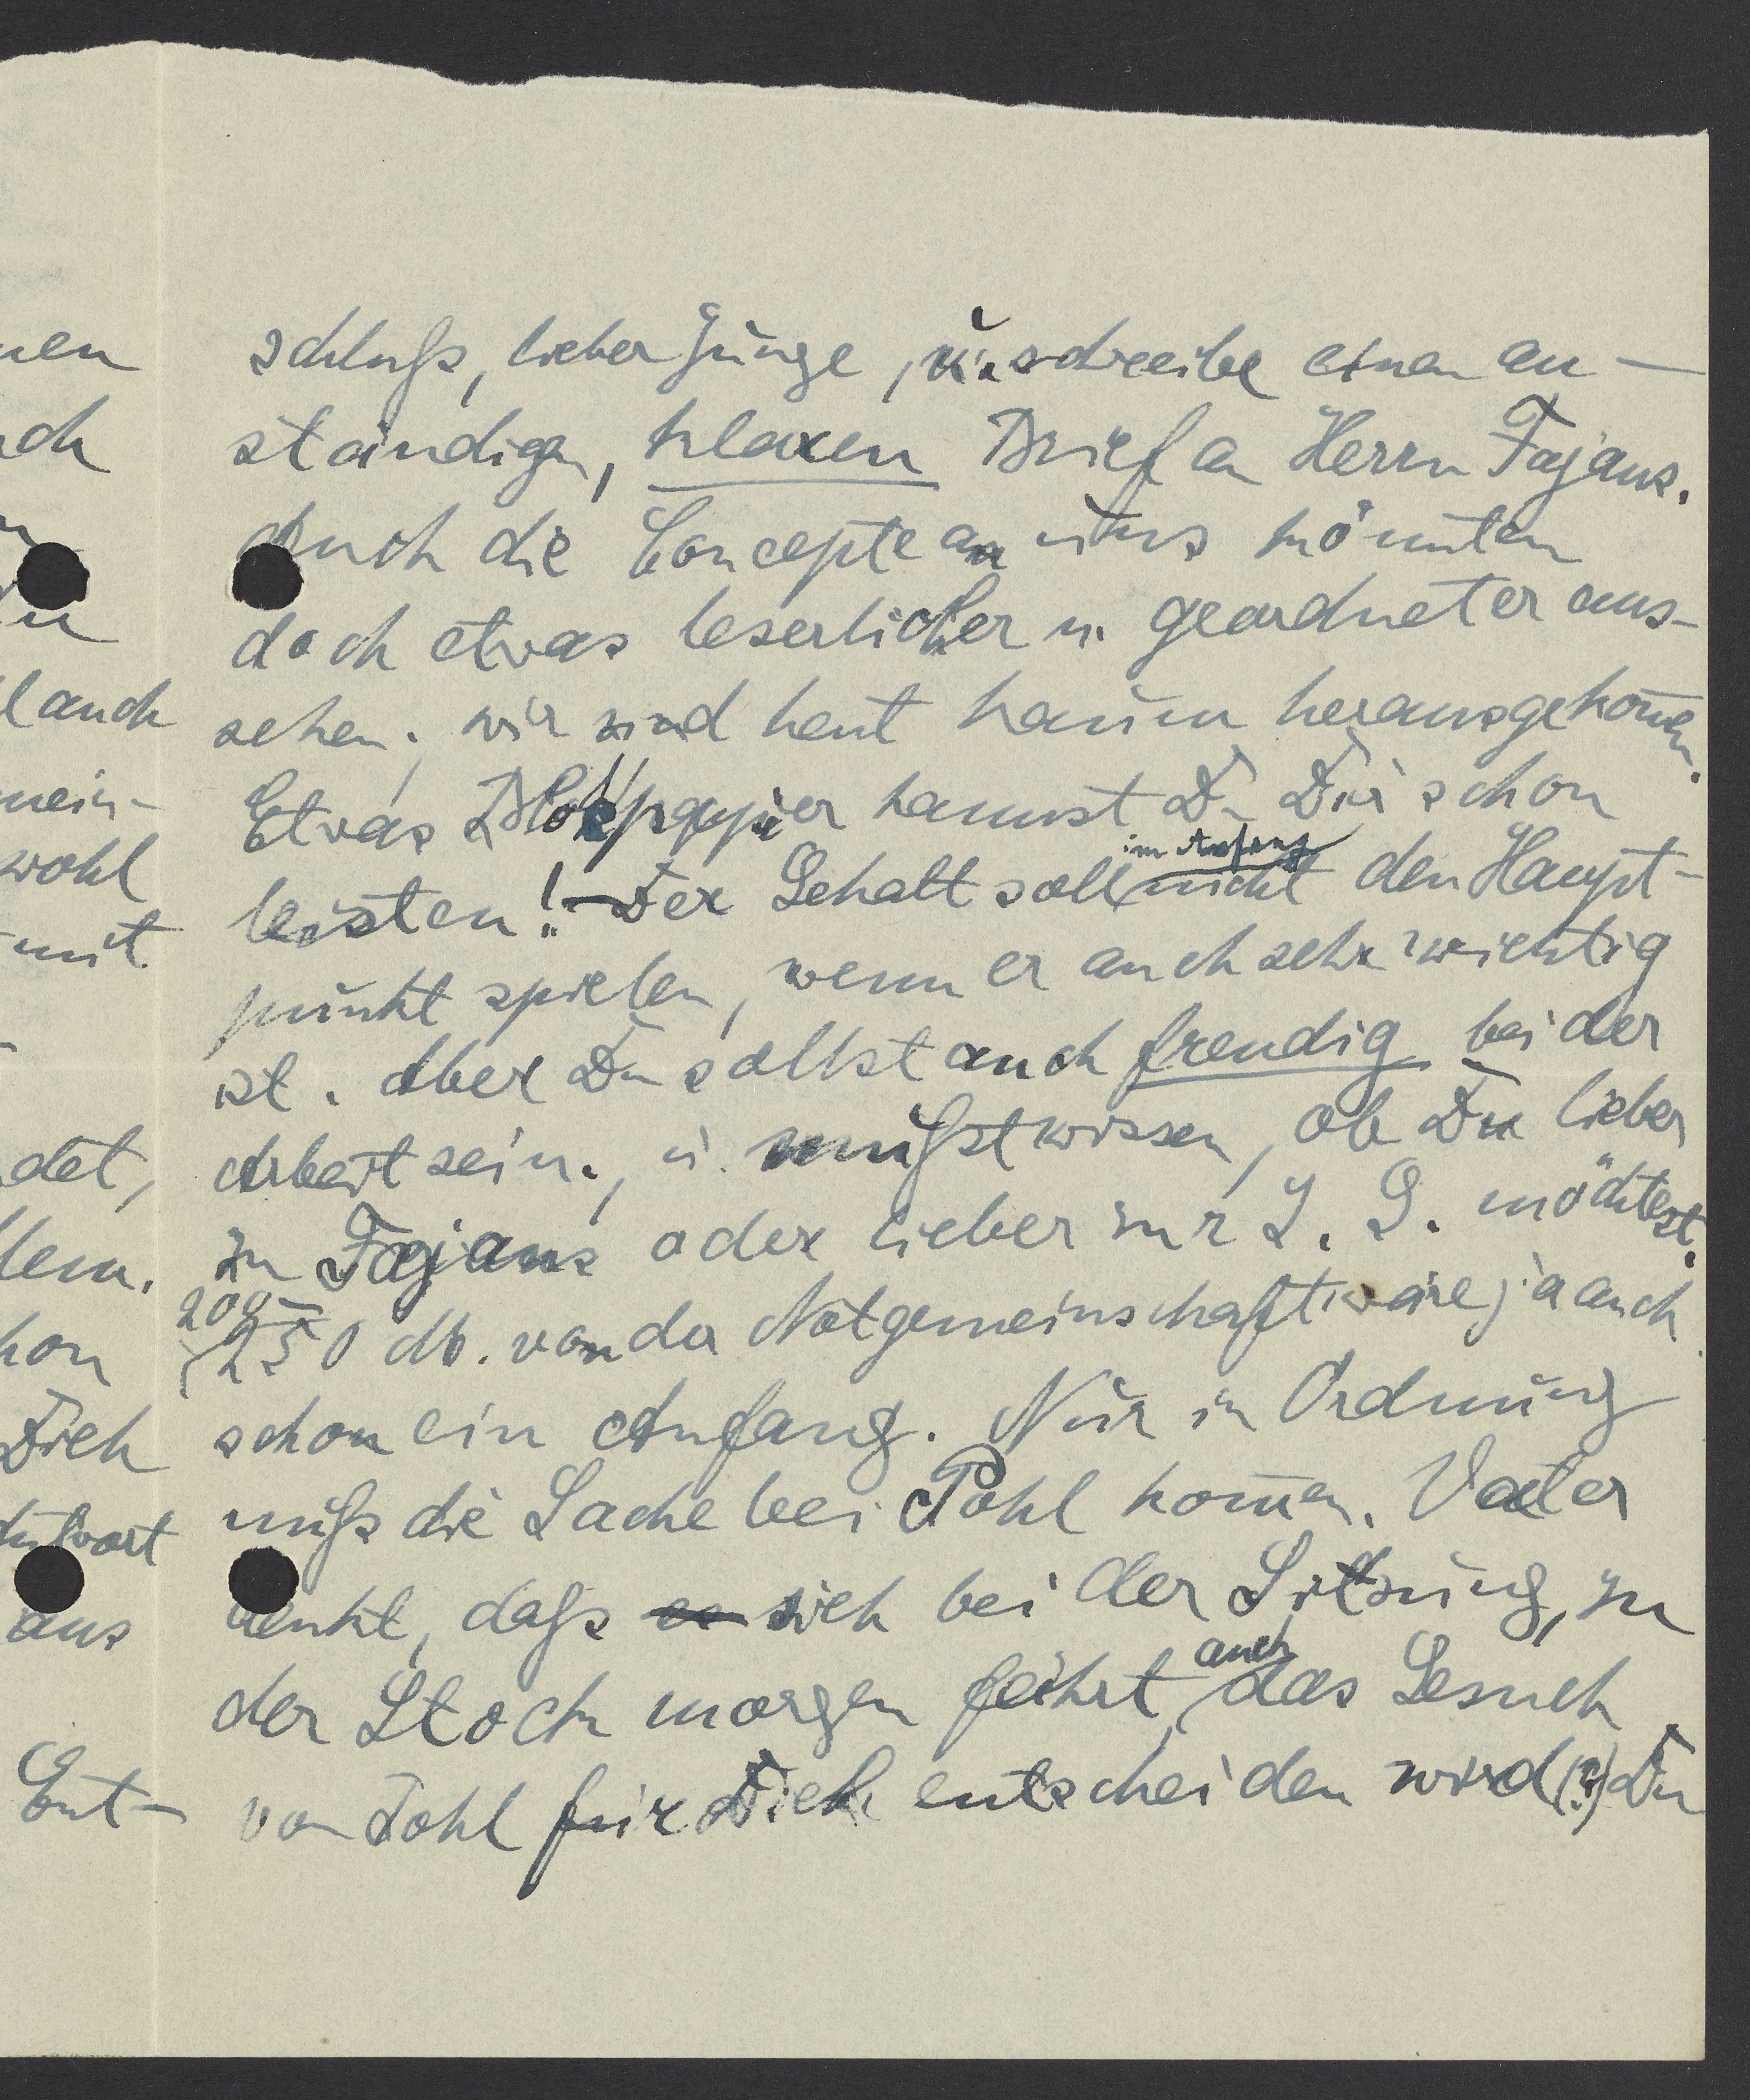 schluß, lieber Junge, u. schreibe einen an-
ständigen, klaren Brief an Herrn Fajans.
Auch die Concepte an uns könnten
doch etwas leserlicher u. geordneter aus-
sehen; wir sind heut kaum herausgekom̄en.
Etwas Blockpapier kannst Du Dir schon
leisten! - Der Gehalt soll im Anfang nicht den Haupt-
punkt spielen, wenn er auch sehr wichtig
ist. Aber Du sollst auch freudig bei der
Arbeit sein, u. mußt wissen, ob Du lieber
zu Fajans oder lieber zur I. G. möchtest.
200-
250 M. von der Notgemeinschaft wäre ja auch
schon ein Anfang. Nur in Ordnung
muß die Sache bei Pohl kom̄en. Vater
denkt, daß es sich bei der Sitzung, zu
der Stock morgen fährt, auch das Gesuch
von Pohl für Dich entscheiden wird (?) Du
nen
ch
lauch
mein-
wohl
mit
det,
lem.
hon
Dich
Antwort
aus
Ent-